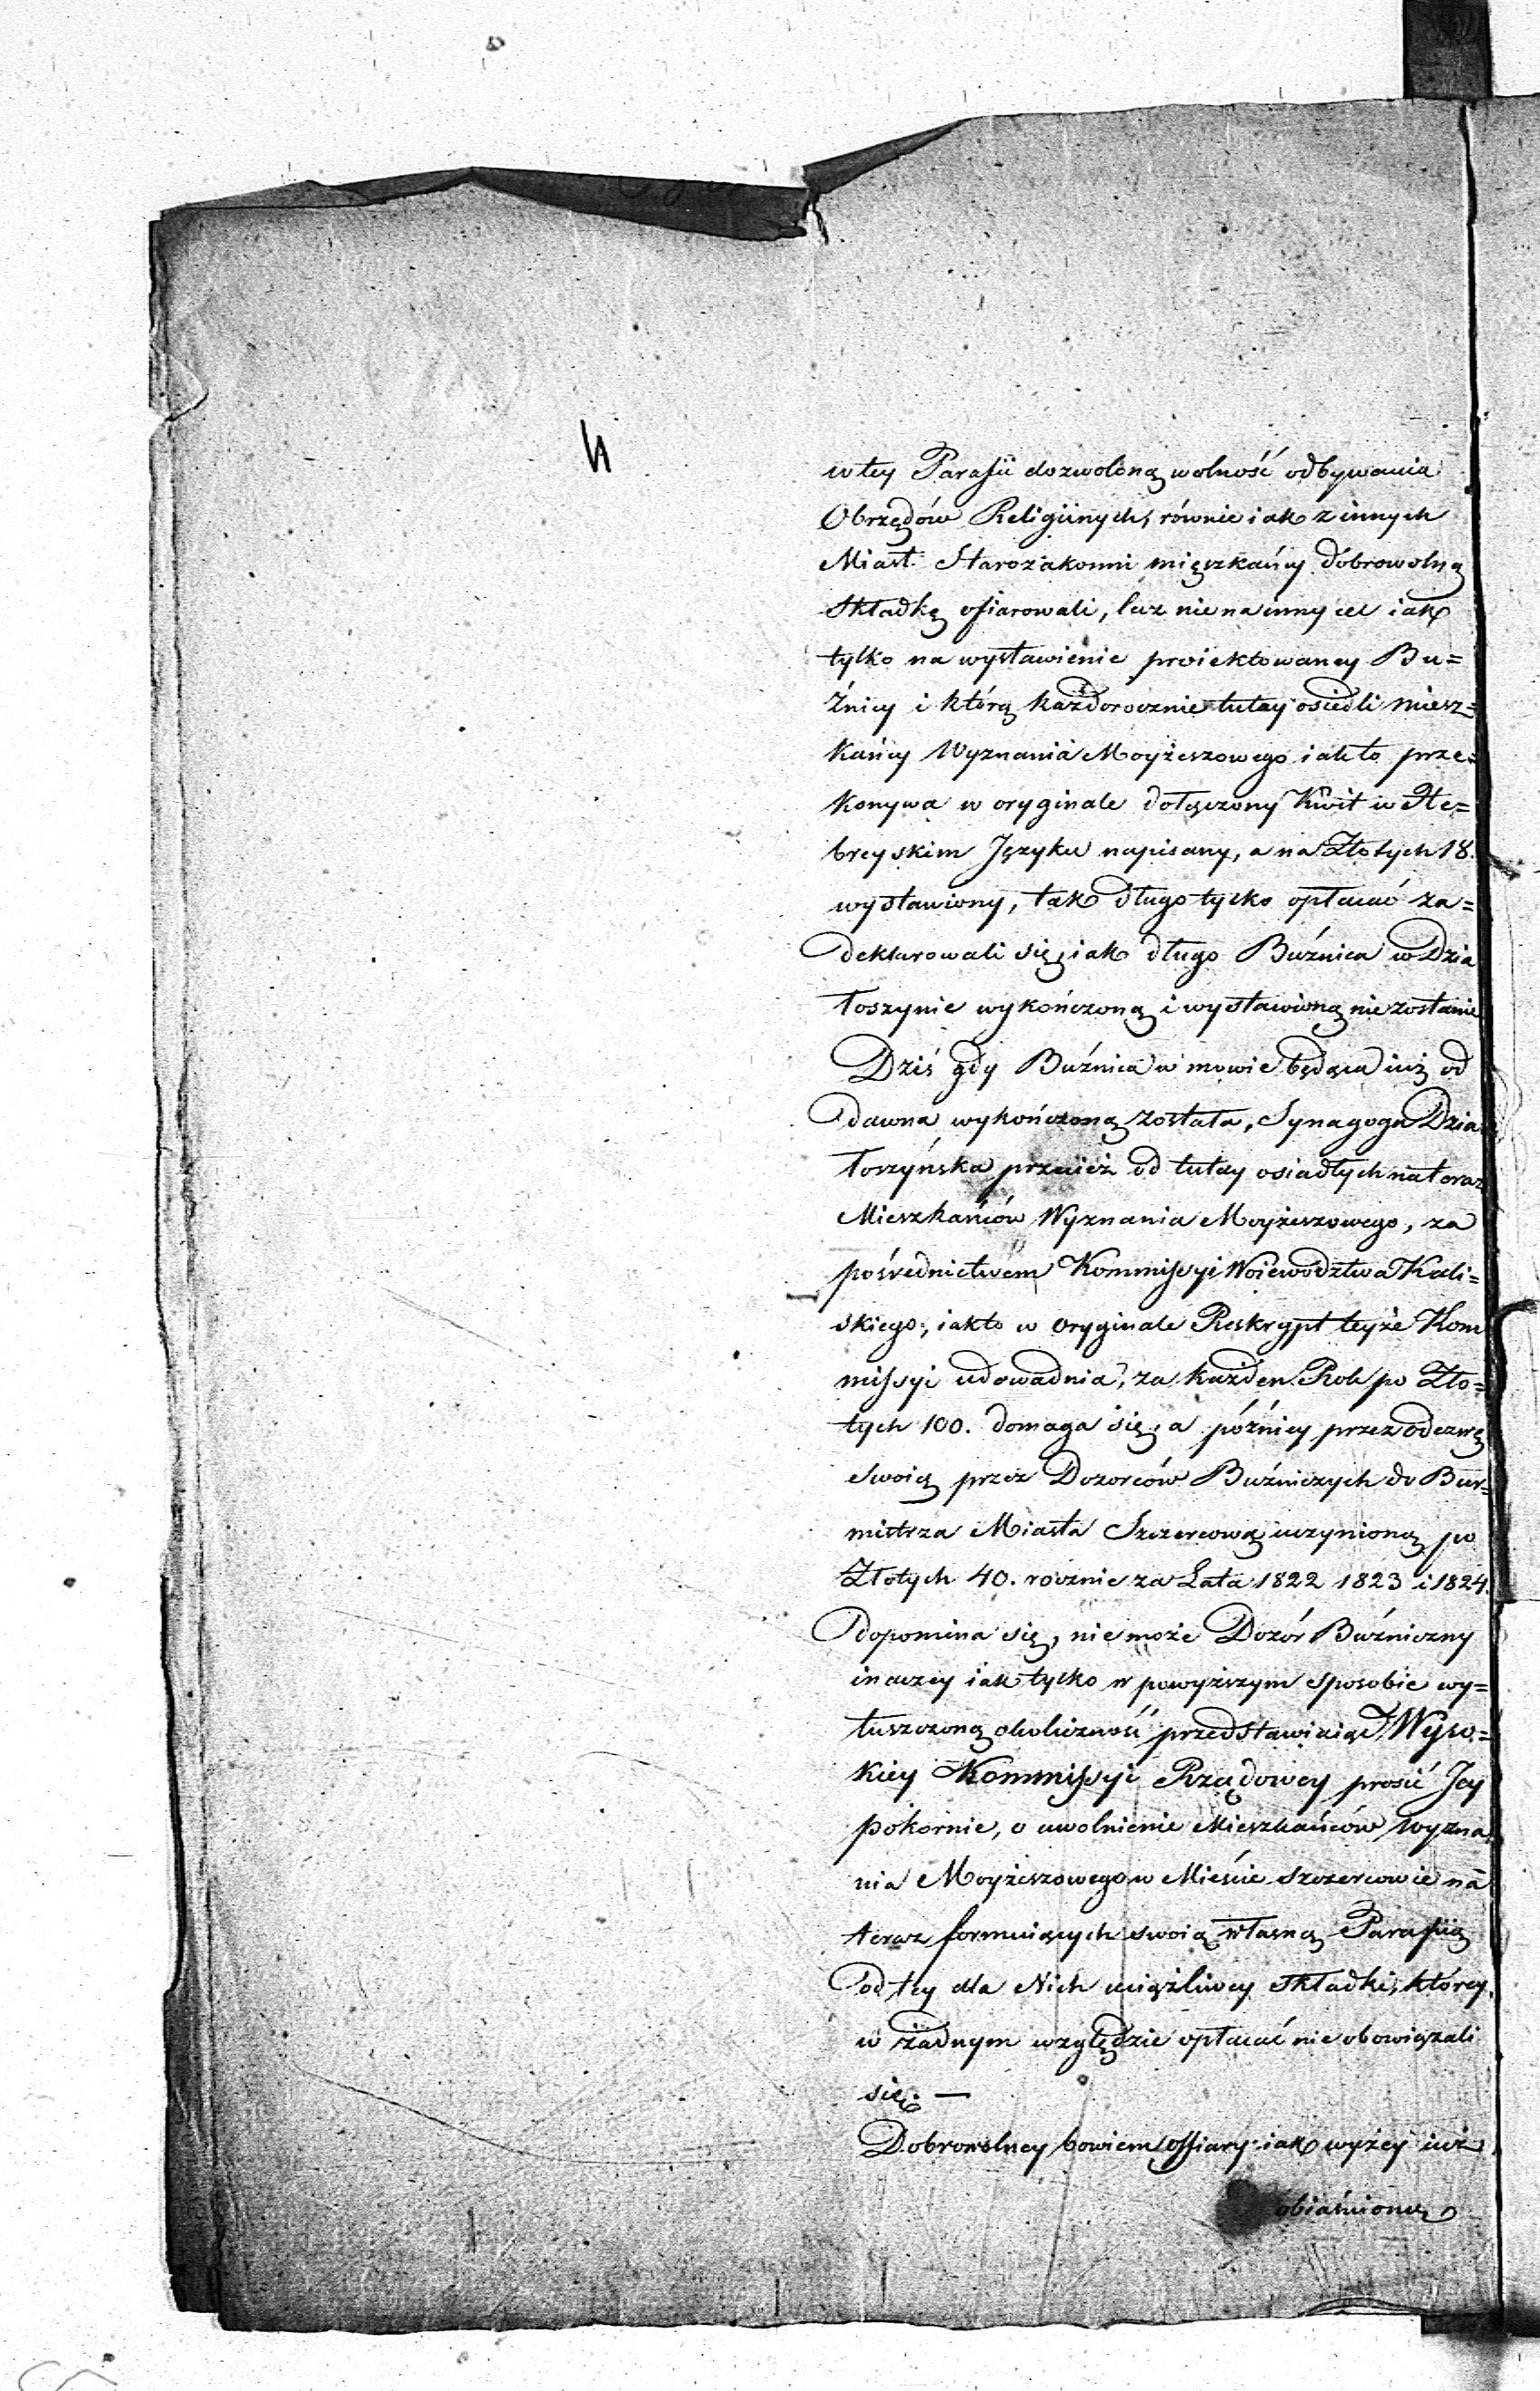 w tey Parafii dozwoloną wolność odbywania
Obrzędów Religiinych, równie iak z innych
Miast Starozakonni mięszkańcy dobrowolną
Składkę ofiarowali, lecz nie na inny cel iak
tylko na wystawienie proiektowaney Bu=
źnicy i którą każdorocznie tutay osiedli miesz=
kańcy Wyznania Moyżeszowego iak to prze=
konywa w oryginale dołączony Kwit w He=
breyskim Języku napisany, a na Złotych 18.
wystawiony, tak długo tylko opłacać za=
deklarowali się, iak długo Buźnica w Dzia
łoszynie wykończoną i wystawioną nie zostanie
Dziś gdy Buźnica w mowie będąca iuż od
dawna wykończoną została, Synagoga Dzia
łoszyńska przecież od tutay osiadłych nateraz
Mieszkańców Wyznania Moyżeszowego, za
pośrednictwem Kommissyi Woiewództwa Kali=
skiego, iak to w oryginale Reskrypt teyże Kom
missyi udowadnia, za każden Rok po Zło=
tych 100. domaga się, a późniey przez odezwę
swoią przez Dozorców Buźniczych do Bur=
mistrza Miasta Szczercowa uczynioną po
Złotych 40. rocznie za Lata 1822 1823 i 1824.
dopomina się, nie może Dozór Buźniczny
inaczey iak tylko w powyższym sposobie wy=
łuszczoną okoliczność przedstawiaiąc Wyso=
kiey Kommissyi Rządowey prosić Jey
pokornie, o uwolnienie Mieszkańców Wyzna
nia Moyżeszowego w Mieście Szczercowie na
teraz formuiących swoią własną Parafią
od tey dla Nich uciążliwey składki, którey
w żadnym względzie opłacać nie obowiązali
się. —
Dobrowolney bowiem offiary iak wyżey iuż
obiaśnioney